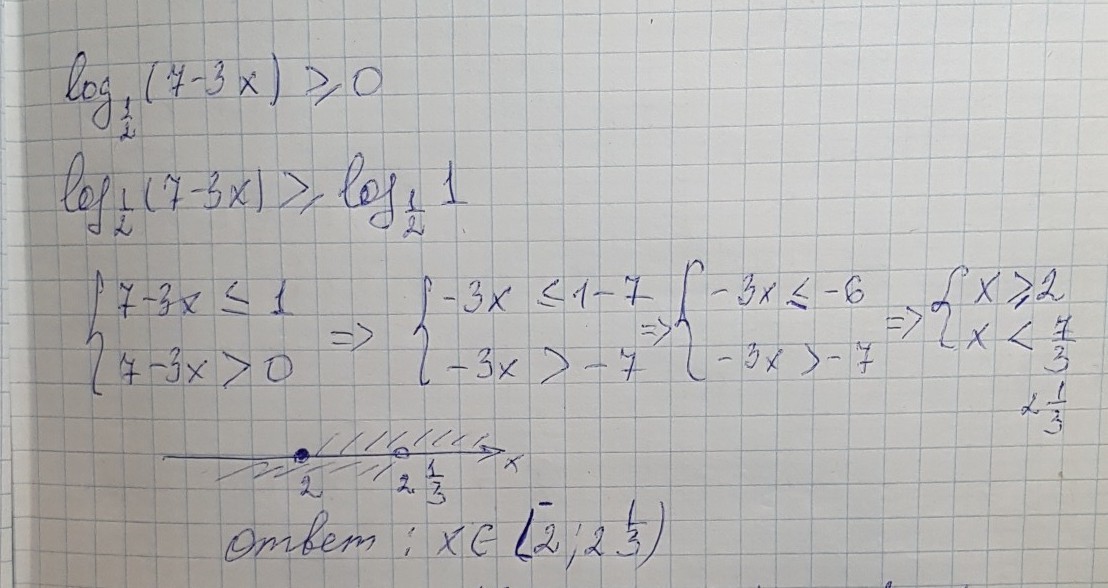 log_{1/2} (7-3x) ≥ 0
log_{1/2} (7-3x) ≥ log_{1/2} 1
{ 7-3x ≤ 1 => { -3x ≤ 1-7 => { -3x ≤ -6 => { x ≥ 2
{ 7-3x > 0 { -3x > -7 { -3x > -7 { x < 7/3
2 1/3
2 2 1/3 x
Ответ : x ∈ [2 ; 2 1/3)